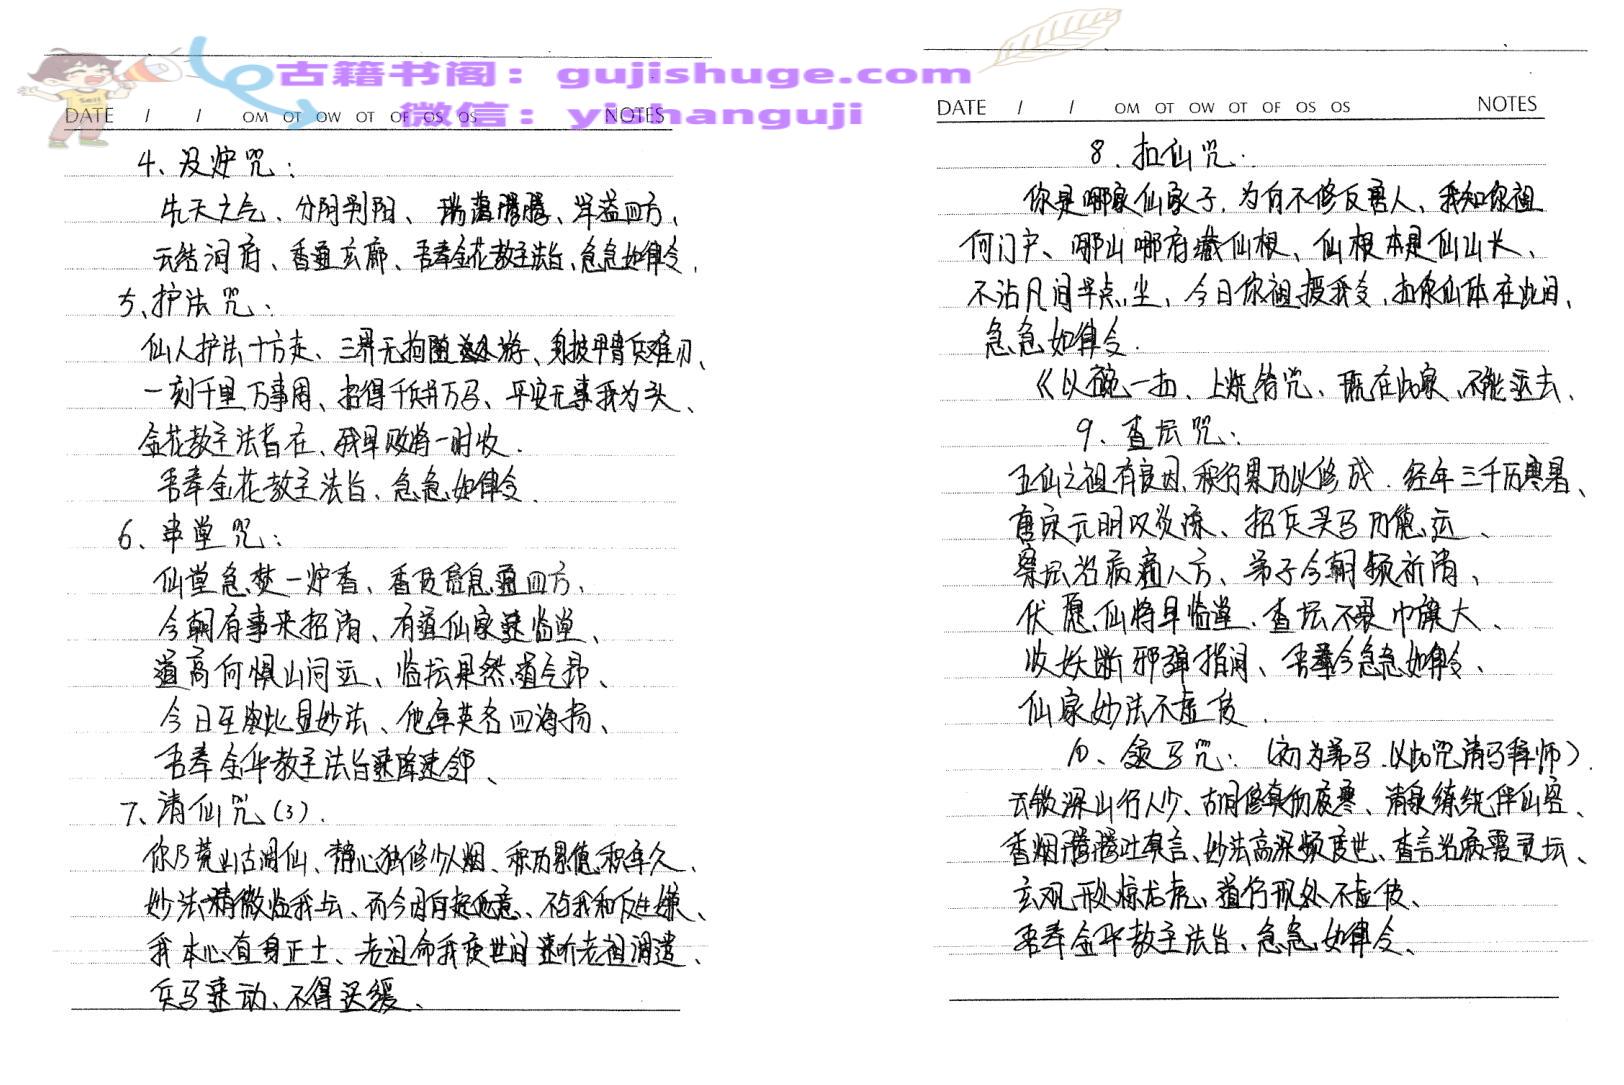 古籍书阁：gujishuge.com
微信：yishanguji
DATE / / OM OT OW OT OF OS OS NOTES
4、没炉咒：
先天之气、分阴判阳、瑞蔼腾腾、洋溢四方、
云结洞府、香通玄廊、吾奉金花教主法旨、急急如律令.
5、护法咒：
仙人护法十方走、三界无拘随处游、身披甲胄兵难刃、
一刻千里万事周、招得千兵并万马、平安无事我为头、
金花教主法旨在、残旱败将一时收.
吾奉金花教主法旨、急急如律令.
6、串堂咒：
仙堂急焚一炉香、香信息通四方、
今朝有事来招请、有道仙家速临堂、
道高何惧山问远、临坛果然道气昂、
今日至此显妙法、他年英名四海扬、
吾奉金华教主法旨速降速邻、
7、清仙咒（3）.
你乃荒山古洞仙、静心独修少人烟、积功累德积年久、
妙法精微临我坛、而今因有、不与我和反生嫌、
我本心直身正士、老祖命我度世间速听老祖调遣、
兵马速动、不得迟缓、
DATE / / OM OT OW OT OF OS OS NOTES
8、扣仙咒：
你是哪家仙家子、为何不修反害人、我知你祖
何门户、哪山哪府藏仙根、仙根本是仙山长、
不沾凡间半点尘、今日你祖授我令、扣你仙体在此间、
急急如律令.
《以碗一扣、上烧符咒、既在此家、不能逃去、
9、查坛咒：
五仙之祖有良因、积行累功以修成. 经年三千历寒暑、
唐宋元明汉炎流、招兵买马功德运、
察坛治病通人方、弟子今朝频祈请、
伏愿仙将早临堂、查坛不畏巾旗大、
收妖断邪弹指间、吾奉令急急如律令、
仙家妙法不虚伎.
10、领马咒：（初为弟马.以此咒请马拜师）.
云锁深山行人少、古洞修真伤夜寒、清泉练绕伴仙客、
香烟腾腾吐真言、妙法高深频度世、查言治病需灵坛、
玄观形处惊龙虎、道行现处不虚伎、
吾奉金华教主法旨、急急如律令、